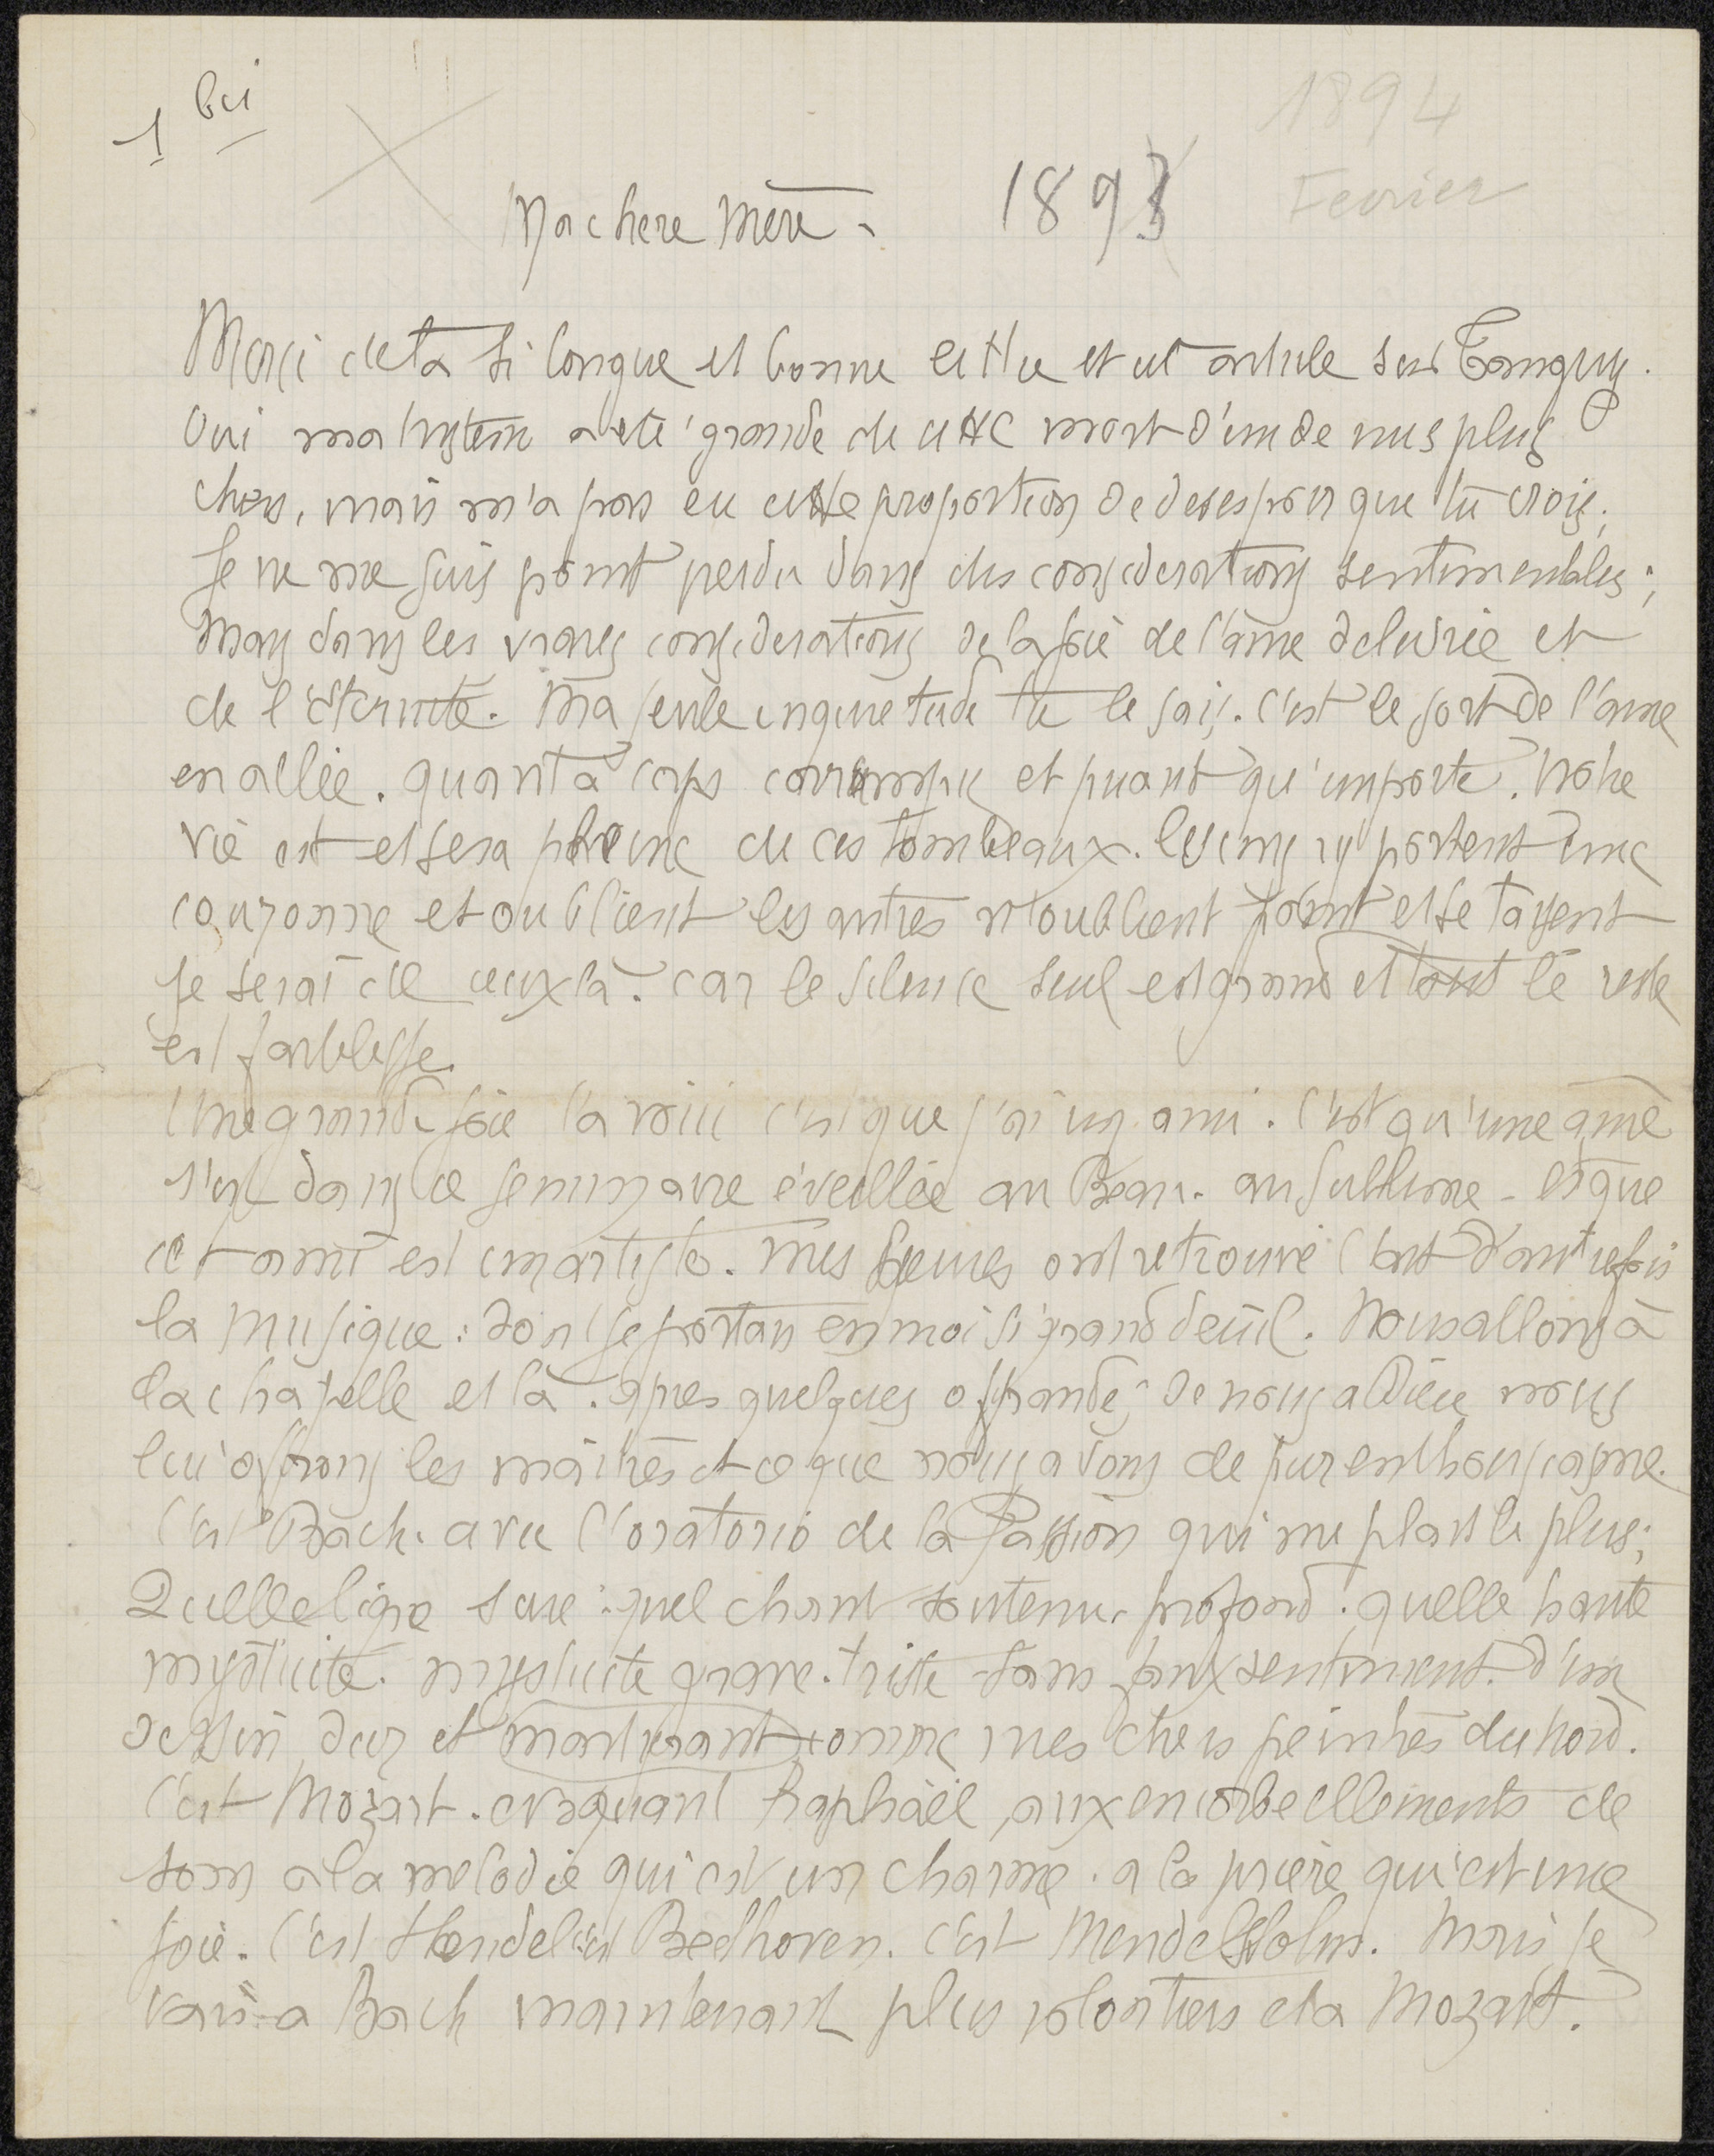 1 bis
1894
Fevrier
Ma chere Mère. 1893
Merci de ta si longue et bonne lettre et cet article sur Tanguy.
Oui ma tristesse a ete grande de cette mort d'un de nos plus
chers, mais n'a pas eu cette proportion de desespoir que tu crois;
Je ne me suis point perdu dans des considerations sentimentales;
Mais dans les vraies considerations de la joie de l'âme delivrée et
de l'Eternité. Ma seule inquietude tu le sais. c'est le sort de l'ame
en allée. quant à corps corrompu et puant qu'importe. Notre
vie est et sera pleine de ces tombeaux. les uns y portent une
couronne et oublient les autres n'oublient point et se taisent
je serai de ceux là. car le silence seul est grand et tout le reste
est faiblesse.
Une grande joie la voici c'est que j'ai un ami. C'est qu'une ame
s'est dans ce seminaire éveillée au Beau. au sublime - et que
cet ami est un artiste. Mes heures ont retrouvé l'art d'autrefois
la Musique: dont je portais en moi si grand deuil. Nous allons à
la chapelle et là. apres quelques offrandes de nous a Dieu nous
lui offrons les maitres et ce que nous avons de pur enthousiasme.
C'est Bach. avec l'oratorio de la Passion qui me plait le plus;
Quelle ligne sure: quel chant soutenu. profond. quelle haute
mysticité. mysticité grave. triste sans faux sentiment. d'un
dessin dur et martirant comme mes chers peintres du Nord.
C'est Mozart. evoquant Raphaël, aux encorbeillements de
sons a la melodie qui est un charme. a la priere qui est une
joie. C'est Hendel c'est Beethoven. c'est Mendelssohn. Mais je
vais a Bach maintenant plus volontiers et a Mozart.